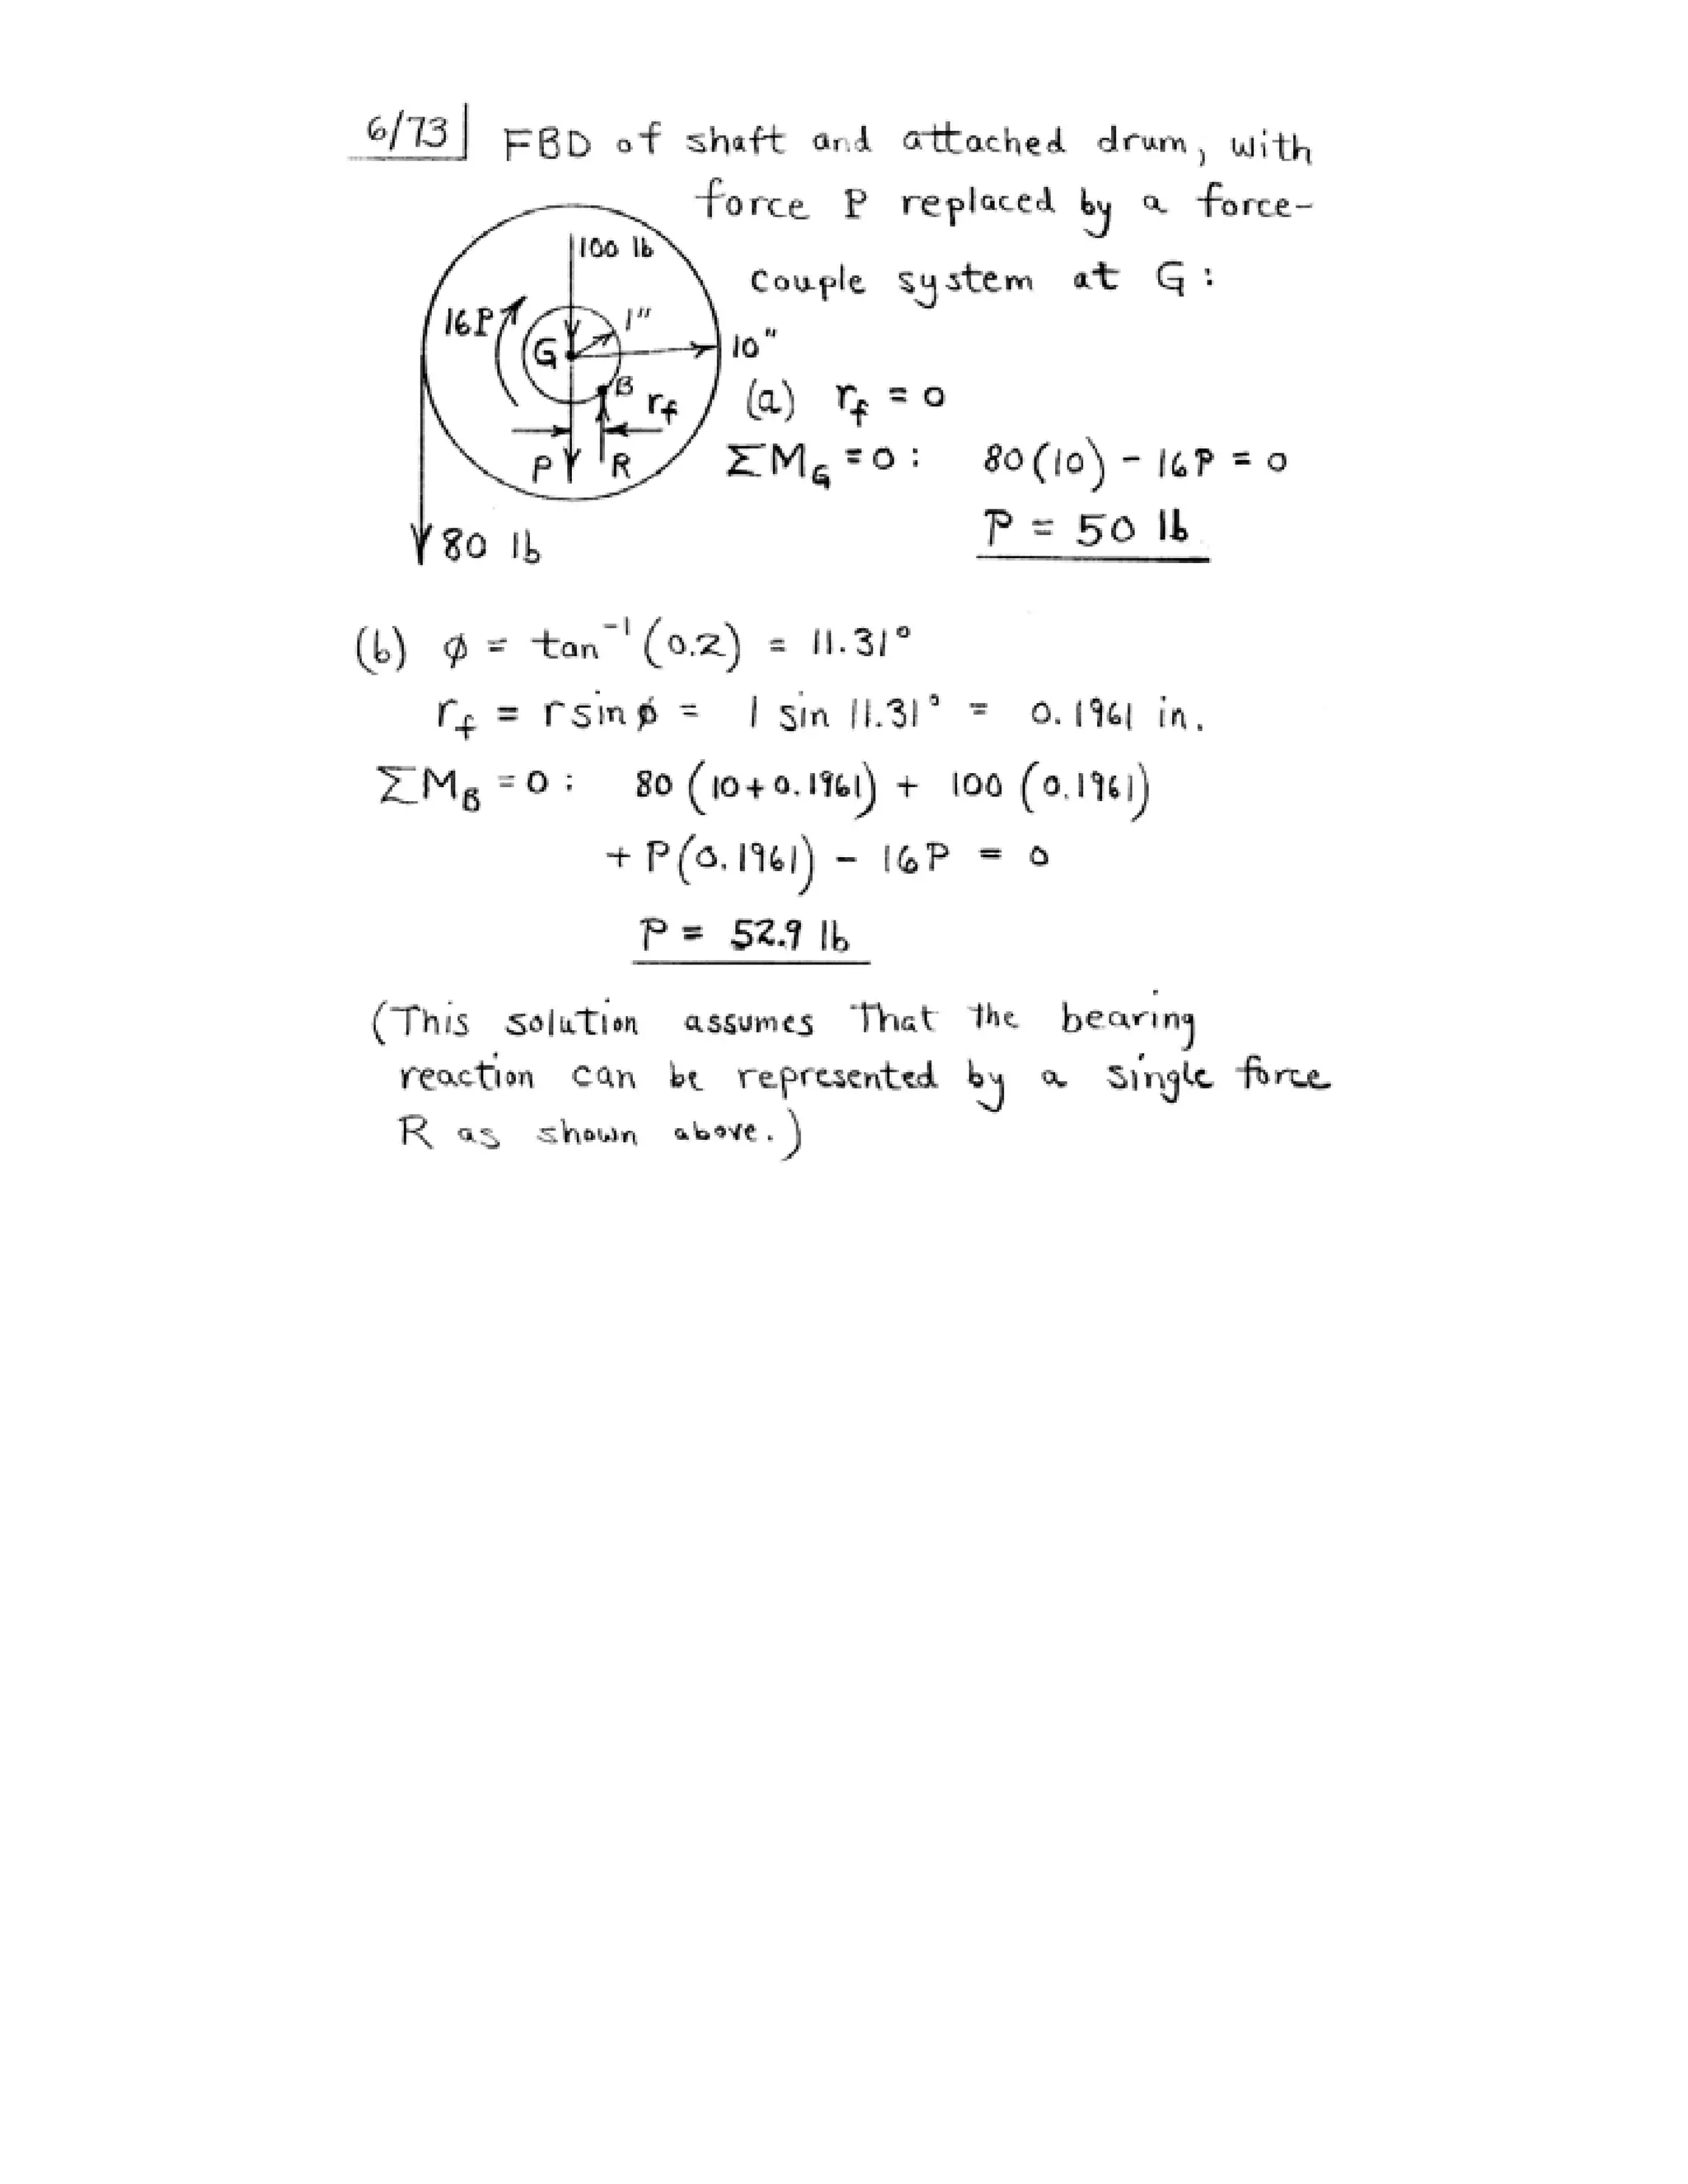 6/73 FBD of shaft and attached drum, with
force P replaced by a force-
couple system at G:
100 lb
16P
1"
G
10"
B
r_f
(a) r_f = 0
P
R
ΣM_G = 0: 80(10) - 16P = 0
P = 50 lb
80 lb
(b) ø = tan⁻¹(0.2) = 11.31°
r_f = r sin ø = 1 sin 11.31° = 0.1961 in.
ΣM_B = 0: 80(10+0.1961) + 100(0.1961)
+ P(0.1961) - 16P = 0
P = 52.9 lb
(This solution assumes that the bearing
reaction can be represented by a single force
R as shown above.)